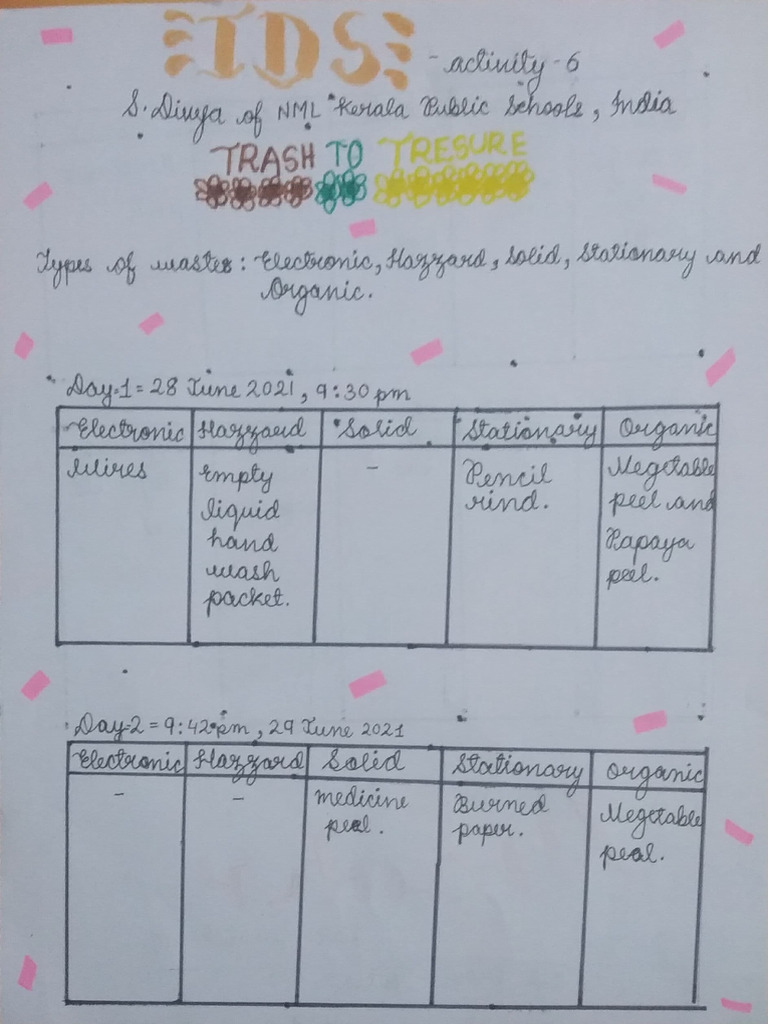 TDS - activity - 6
S. Divya of NML Kerala Public Schools, India
TRASH TO TRESURE
Types of wastes: Electronic, Hazzard, Solid, Stationary and
Organic.
Day-1 = 28 June 2021, 9:30 pm
Electronic Hazzard Solid Stationary Organic
Wires Empty - Pencil Vegetable
liquid rind. peel and
hand Papaya
wash peel.
packet.
Day-2 = 9:42 pm, 29 June 2021
Electronic Hazzard Solid Stationary Organic
- - medicine Burned Vegetable
peal. paper. peal.